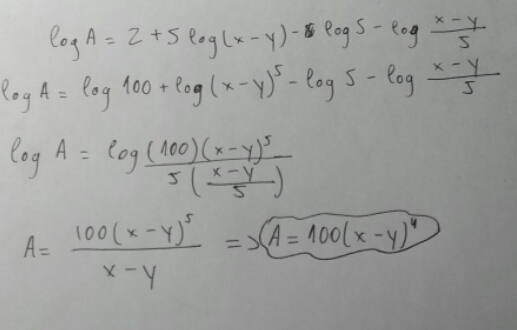 log A = 2 + 5 log(x-y) - log 5 - log (x-y)/5
log A = log 100 + log(x-y)⁵ - log 5 - log (x-y)/5
log A = log (100)(x-y)⁵/5((x-y)/5)
A = 100(x-y)⁵/(x-y) => A = 100(x-y)⁴